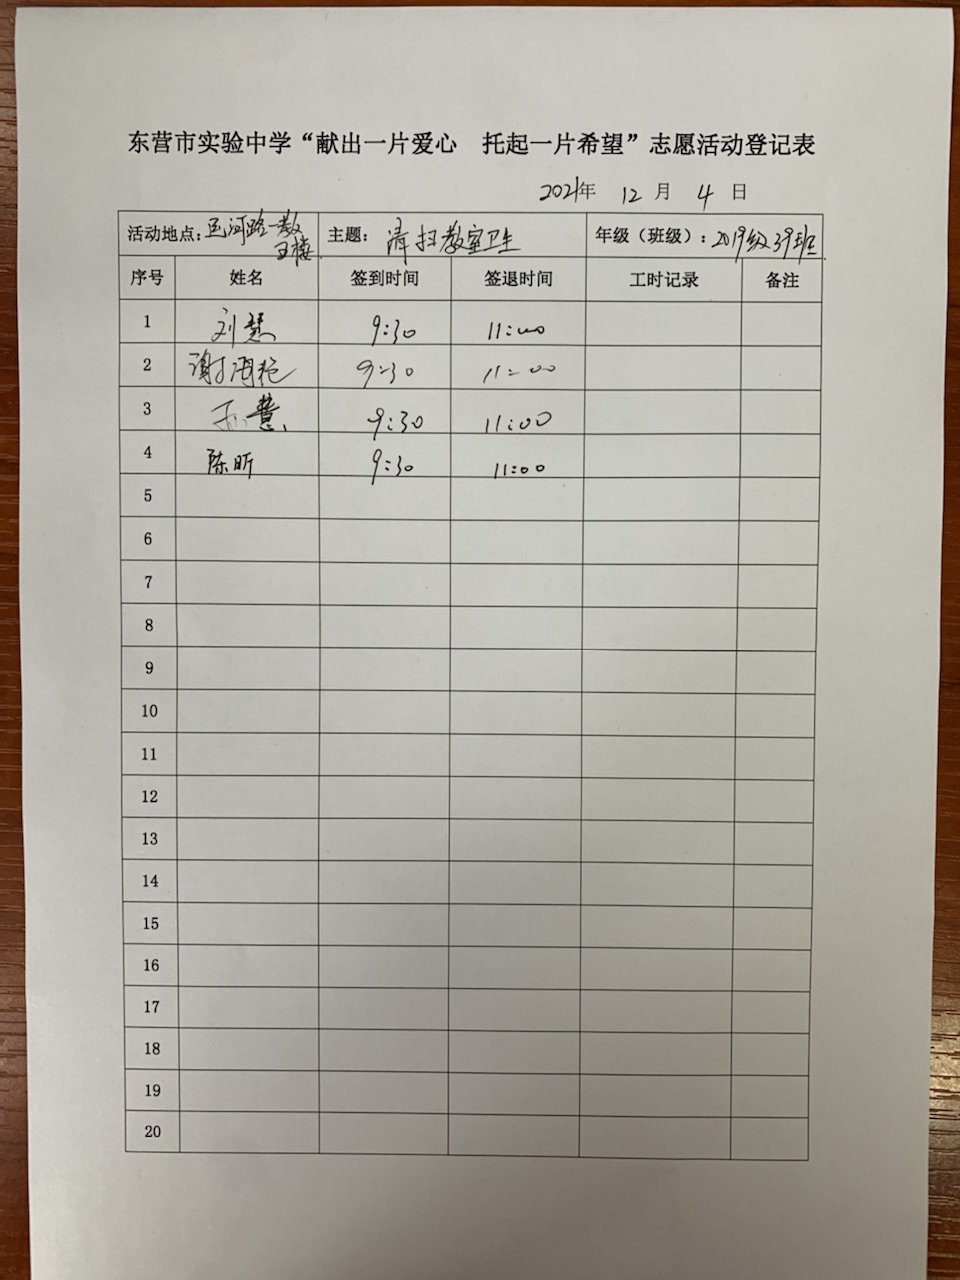 东营市实验中学“献出一片爱心 托起一片希望”志愿活动登记表
2021年 12 月 4 日
活动地点: 运河路一教五楼 主题: 清扫教室卫生 年级（班级）: 2019级39班
序号 姓名 签到时间 签退时间 工时记录 备注
1 刘慧 9:30 11:00
2 谢海艳 9:30 11:00
3 孙慧 9:30 11:00
4 陈昕 9:30 11:00
5
6
7
8
9
10
11
12
13
14
15
16
17
18
19
20